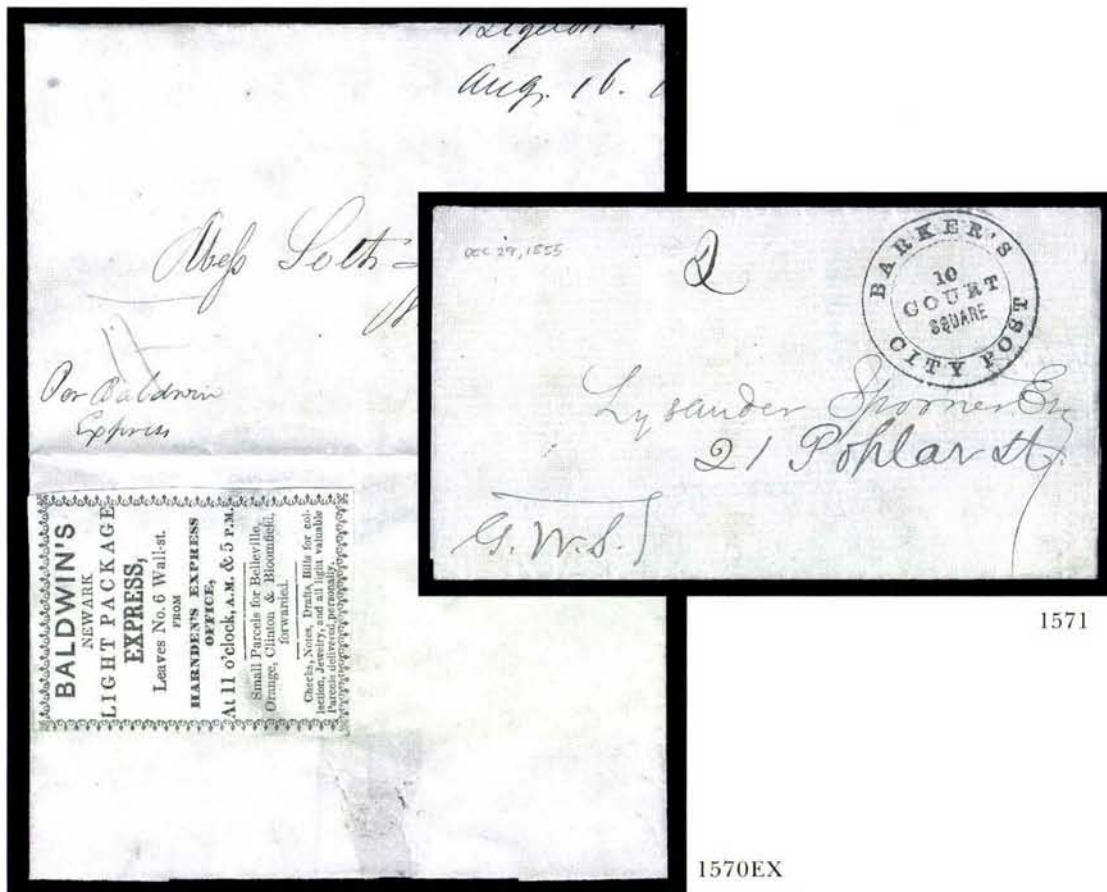 Aug. 16.
Per Baldwin
Express
BALDWIN'S
NEWARK
LIGHT PACKAGE
EXPRESS,
Leaves No. 6 Wall-st.
FROM
HARNDEN'S EXPRESS
OFFICE,
At 11 o'clock, A.M. & 5 P.M.
Small Parcels for Belleville,
Orange, Clinton & Bloomfield,
forwarded.
Checks, Notes, Drafts, Bills for col-
lection, Jewelry, and all light valuable
Parcels delivered personally.
1570EX
DEC 29, 1855
2
BARKER'S
CITY POST
10
COURT
SQUARE
Lysander Spooner Esq
21 Poplar St.
G. W. S.
1571